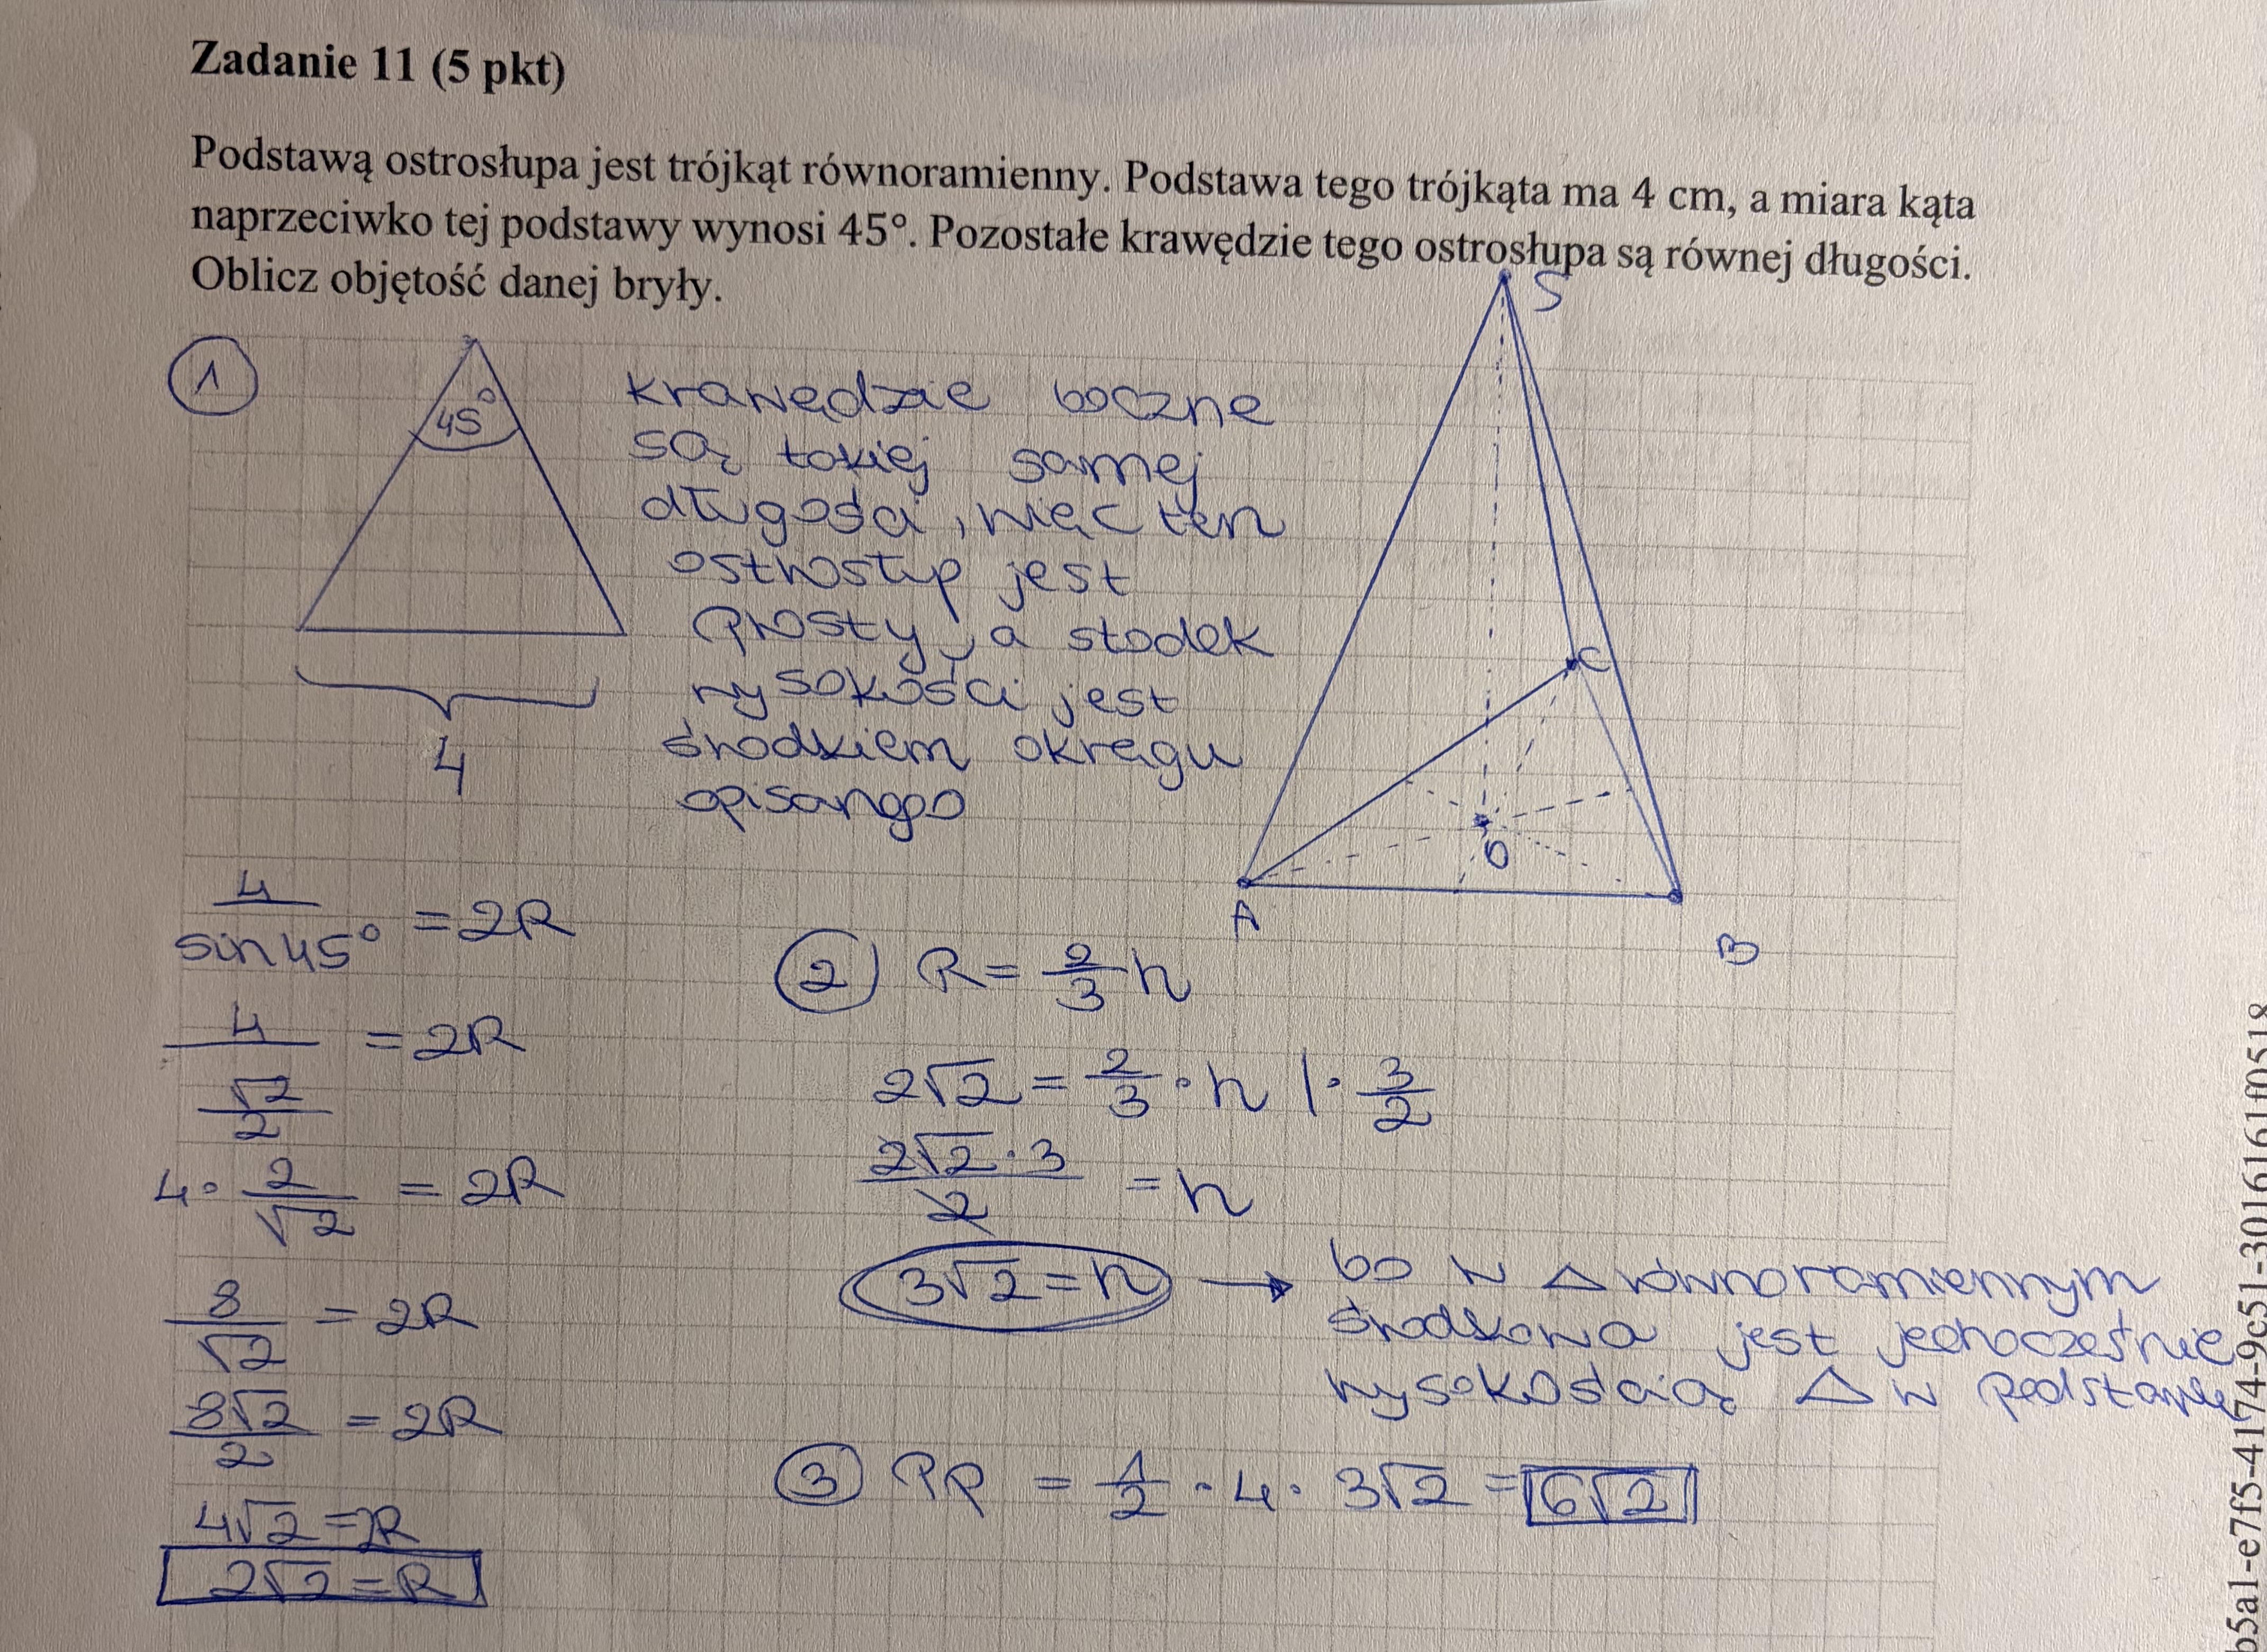 Zadanie 11 (5 pkt)
Podstawą ostrosłupa jest trójkąt równoramienny. Podstawa tego trójkąta ma 4 cm, a miara kąta
naprzeciwko tej podstawy wynosi 45°. Pozostałe krawędzie tego ostrosłupa są równej długości.
Oblicz objętość danej bryły.
1
45°
4
krawędzie boczne
są takiej samej
długości, więc ten
ostrosłup jest
prosty, a spodek
wysokości jest
środkiem okręgu
opisanego
S
C
O
A
B
4/sin45° = 2R
4/(√2/2) = 2R
4·2/√2 = 2R
8/√2 = 2R
8√2/2 = 2R
4√2=2R
2√2=R
2 R=2/3h
2√2=2/3·h |·3/2
2√2·3/2 =h
3√2=h → bo w Δ równoramiennym
środkowa jest jednocześnie
wysokością Δ w podstawie
3 PP = 1/2·4·3√2=6√2
b5a1-e7f5-4174-9c51-3016161f0518